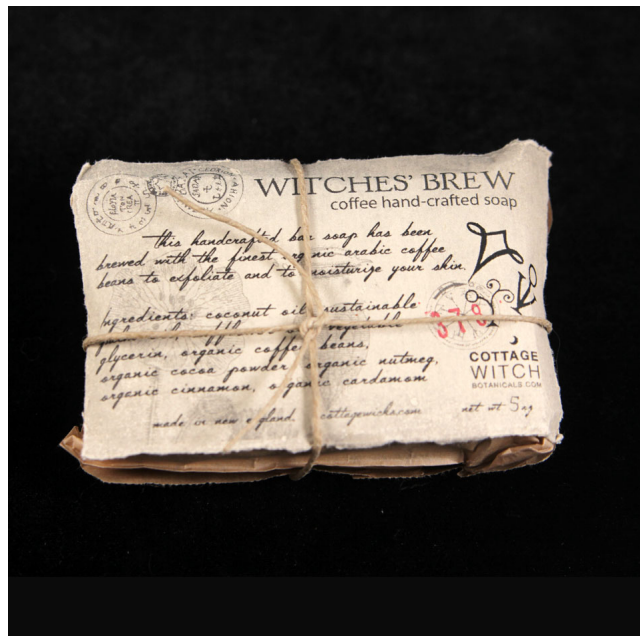 WITCHES' BREW
coffee hand-crafted soap
this handcrafted bar soap has been
brewed with the finest organic arabic coffee
beans to exfoliate and to moisturize your skin.
Ingredients: coconut oil, sustainable
vegetable
glycerin, organic coffee beans,
organic cocoa powder, organic nutmeg,
organic cinnamon, organic cardamom
378
COTTAGE
WITCH
BOTANICALS.COM
made in new england. cottagewicks.com net wt 5oz